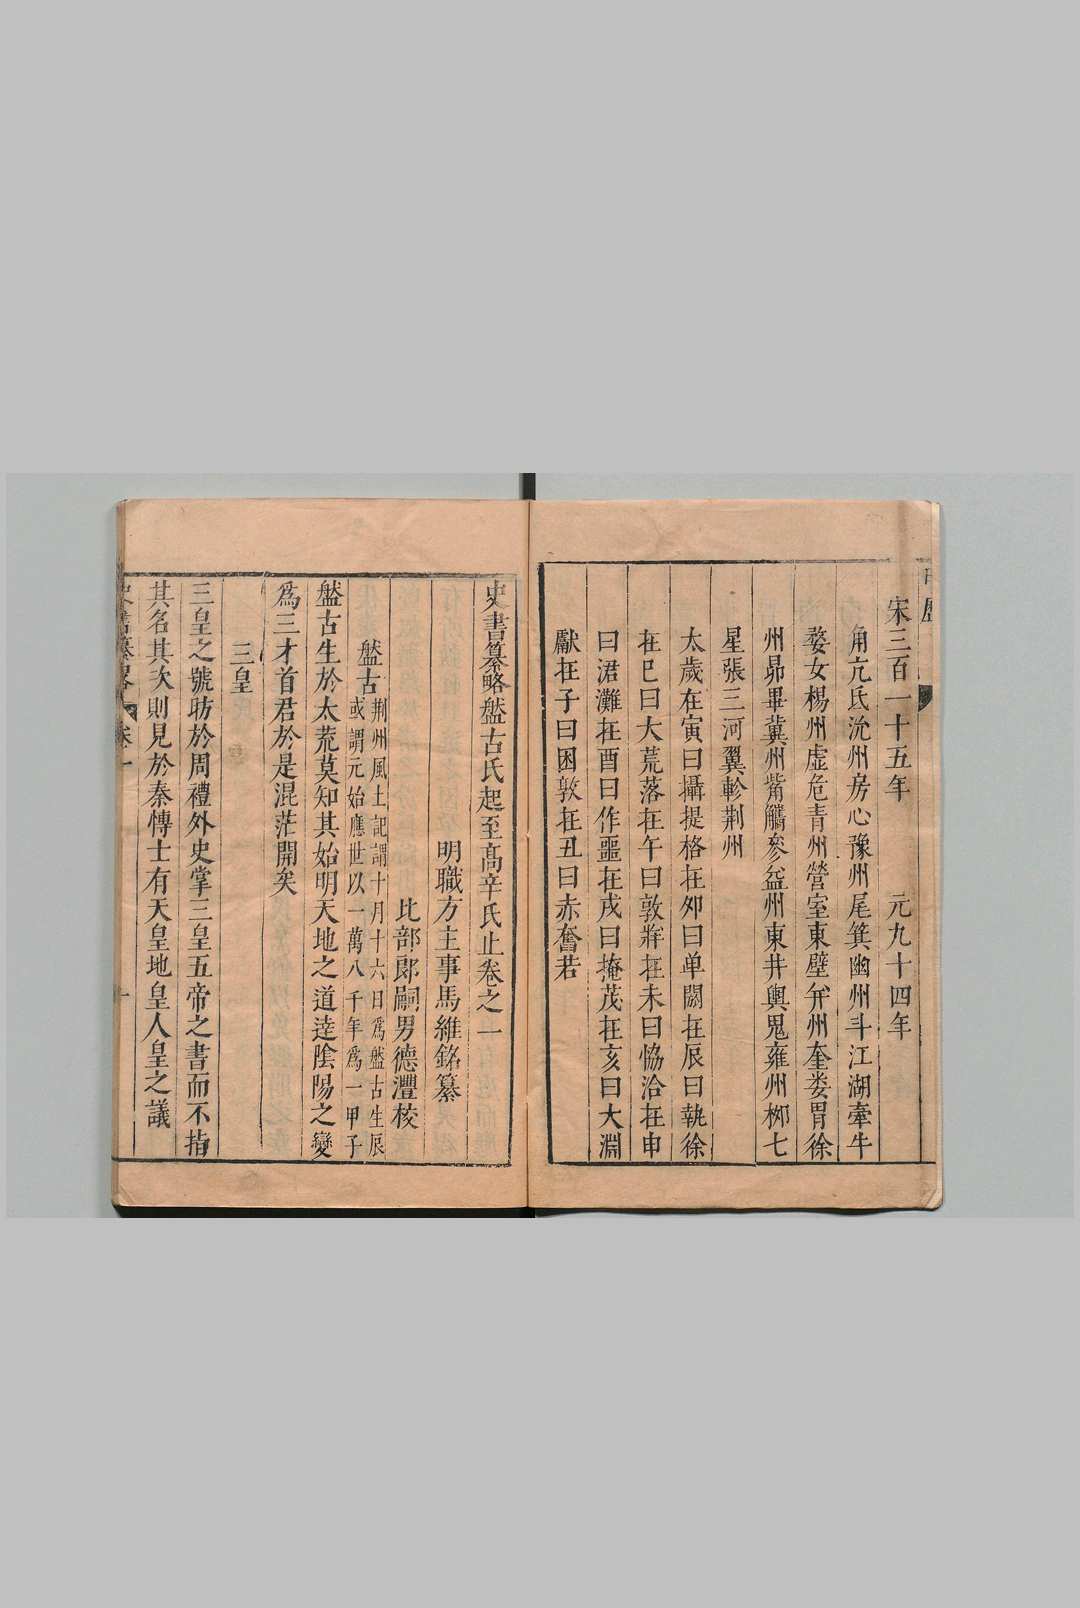 宋三百一十五年 元九十四年
角亢氐沇州房心豫州尾箕幽州斗江湖牽牛
婺女楊州虛危青州營室東壁并州奎婁胃徐
州昴畢冀州觜觿參益州東井輿鬼雍州桺七
星張三河翼軫荆州
太歲在寅曰攝提格在夘曰单閼在辰曰執徐
在巳曰大荒落在午曰敦牂在未曰恊洽在申
曰涒灘在酉曰作噩在戌曰掩茂在亥曰大淵
獻在子曰困敦在丑曰赤奮若
史書纂略盤古氏起至高辛氏止卷之一
明職方主事馬維銘纂
比部郎嗣男德灃校
盤古
荆州風土記謂十月十六日為盤古生辰
或謂元始應世以一萬八千年爲一甲子
盤古生於太荒莫知其始明天地之道逹陰陽之變
爲三才首君於是混茫開矣
三皇
三皇之號昉於周禮外史掌三皇五帝之書而不指
其名其次則見於秦愽士有天皇地皇人皇之議
史書纂略 卷一 一